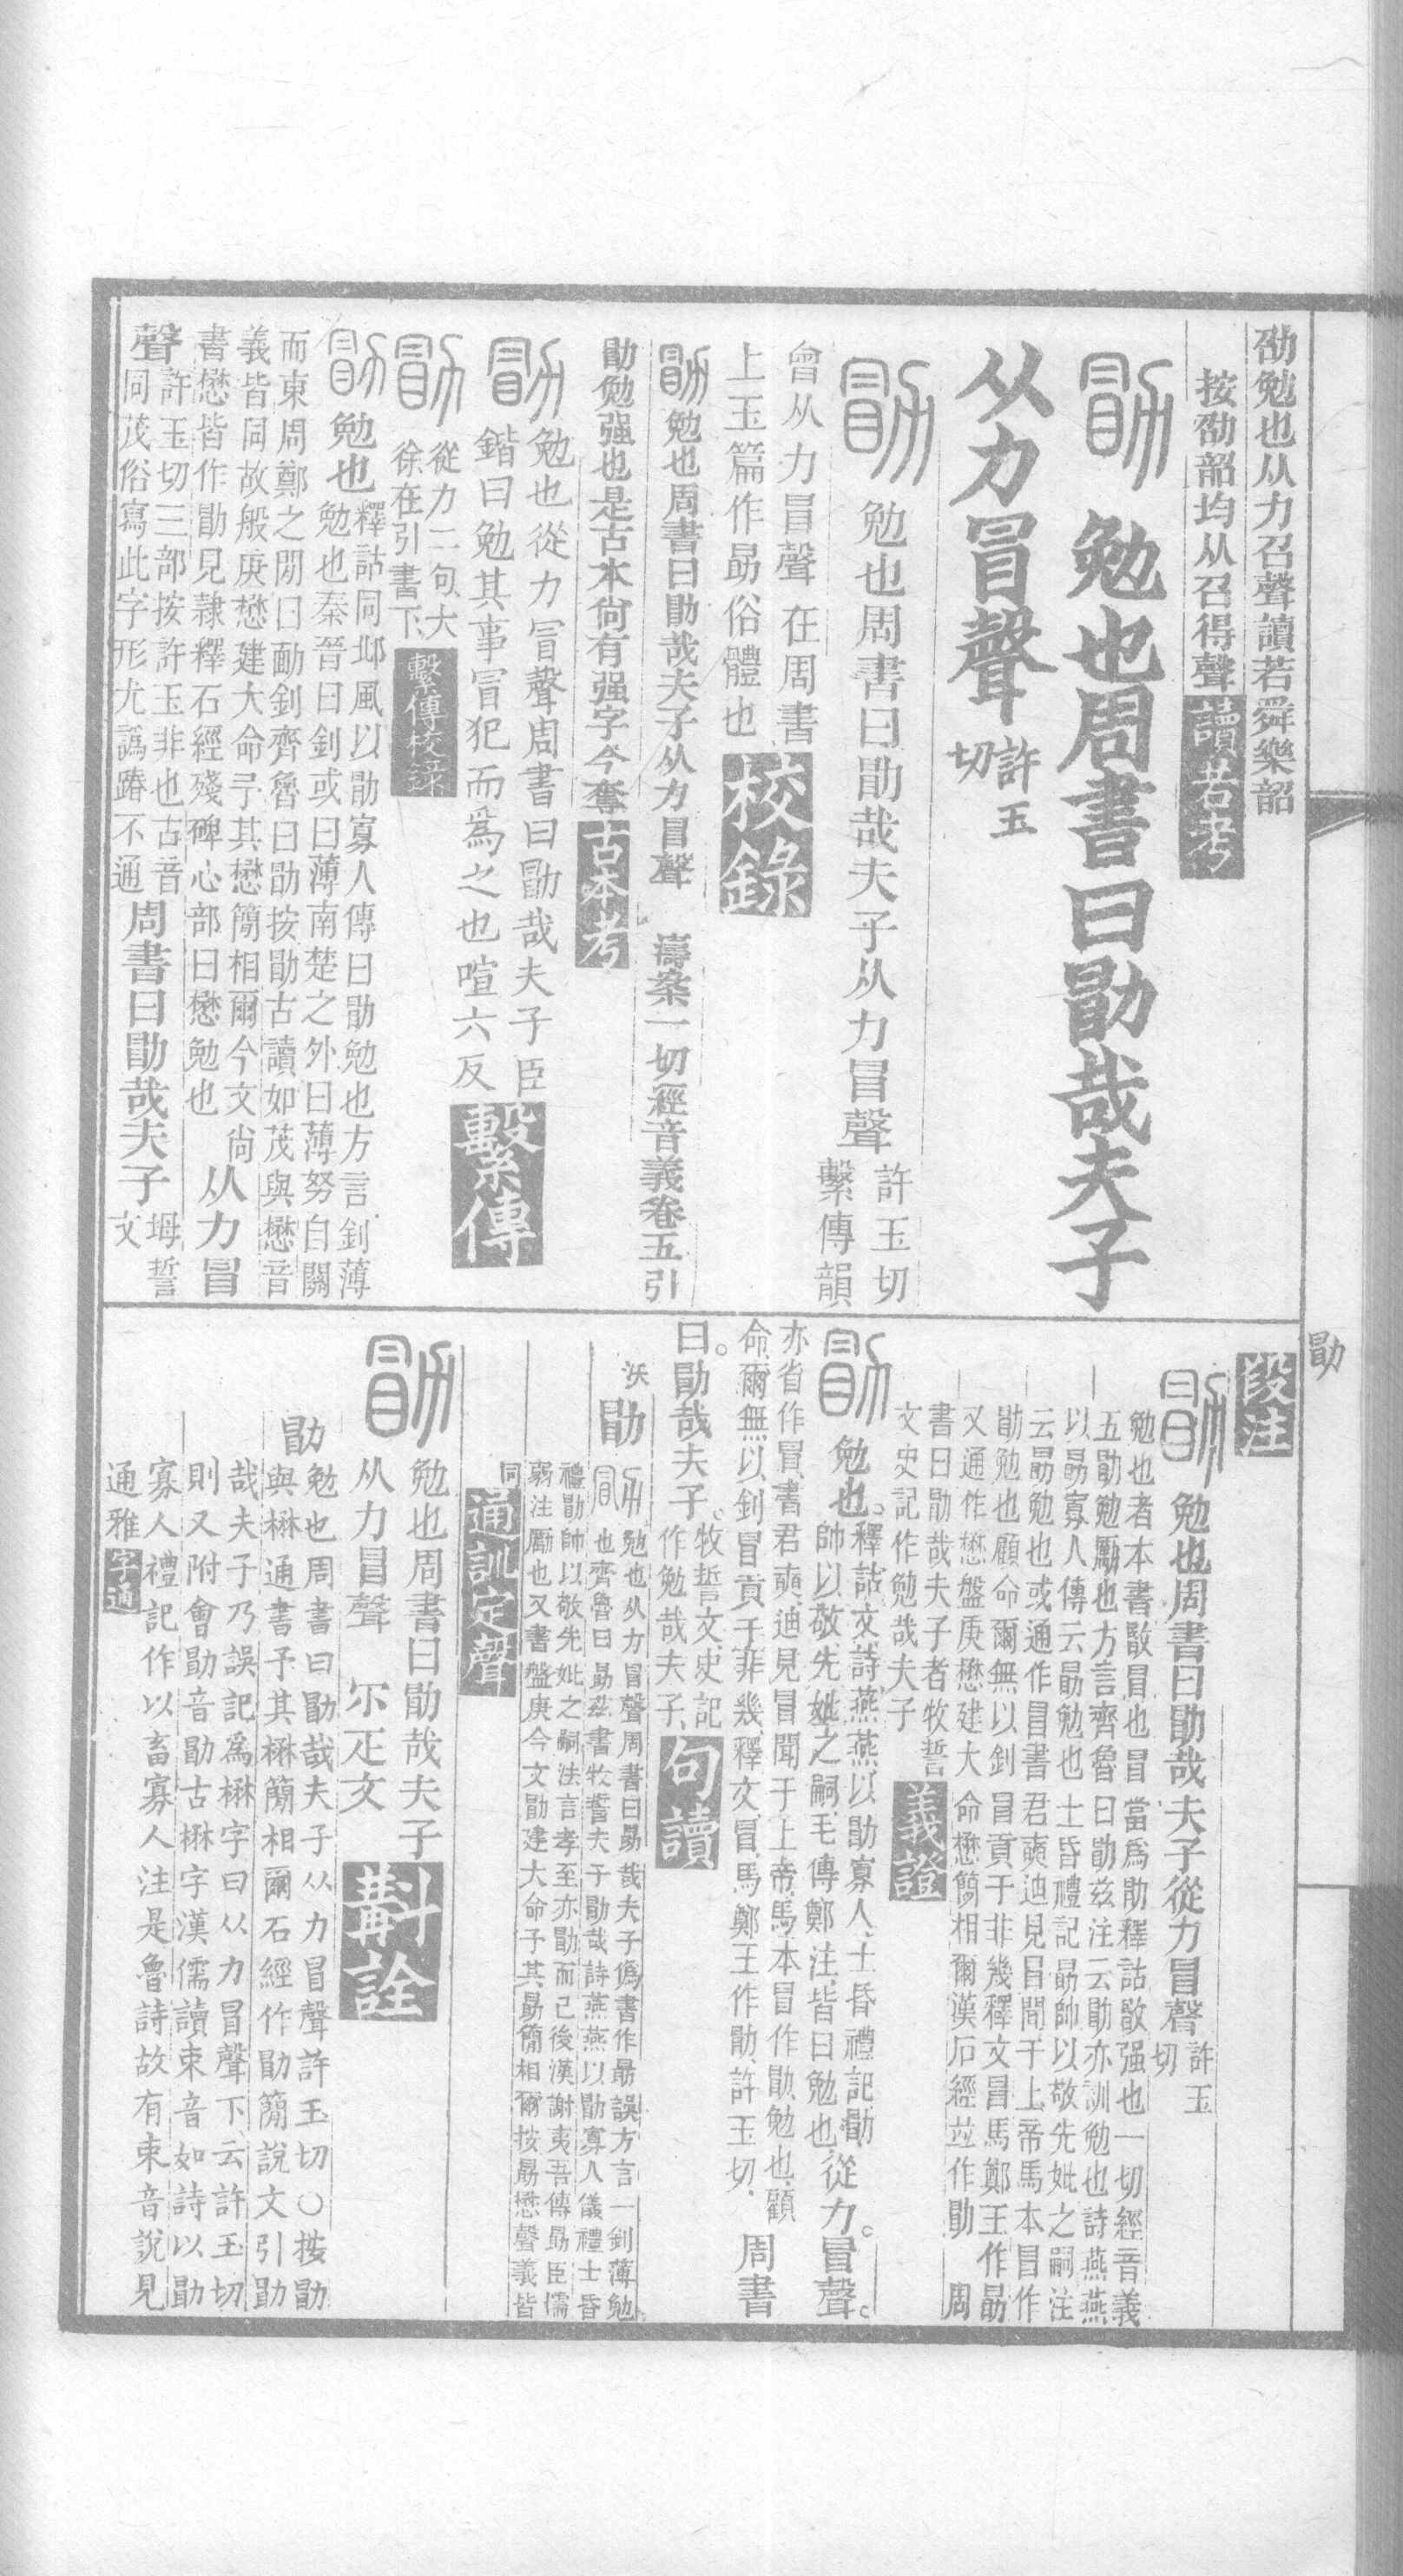 劭勉也从力召聲讀若舜樂韶
按劭韶均从召得聲讀若考
勉也周書曰勖哉夫子
从力冒聲許玉切
勉也周書曰勖哉夫子从力冒聲許玉切
繫傳韻
曾从力冒聲在周書
上玉篇作勗俗體也校錄
勉也周書曰勖哉夫子从力冒聲 濤案一切經音義卷五引
勖勉强也是古本尙有强字今奪古本考
勉也從力冒聲周書曰勖哉夫子臣
鍇曰勉其事冒犯而爲之也喧六反繫傳
從力二句大
徐在引書下繫傳校錄
勉也釋詁同邶風以勖寡人傳曰勖勉也方言釗薄
勉也秦晉曰釗或曰薄南楚之外曰薄努自關
而東周鄭之閒曰勔釗齊魯曰勖按勖古讀如茂與懋音
義皆同故般庚懋建大命予其懋簡相爾今文尙
書懋皆作勖見隸釋石經殘碑心部曰懋勉也从力冒
聲許玉切三部按許玉非也古音
同茂俗寫此字形尤譌踳不通周書曰勖哉夫子坶誓
文
勖
段注
勉也周書曰勖哉夫子從力冒聲許玉
切
勉也者本書敃冒也冒當爲勖釋詁敃强也一切經音義
五勖勉勵也方言齊魯曰勖茲注云勖亦訓勉也詩燕燕
以勗寡人傳云勗勉也士昏禮記勗帥以敬先妣之嗣注
云勗勉也或通作冒書君奭迪見冒聞于上帝馬本冒作
勖勉也顧命爾無以釗冒貢于非幾釋文冒馬鄭王作勗
又通作懋盤庚懋建大命懋簡相爾漢石經竝作勖 周
書曰勖哉夫子者牧誓
文史記作勉哉夫子義證
勉也釋詁文詩燕燕以勖寡人士昏禮記勖
帥以敬先妣之嗣毛傳鄭注皆曰勉也從力冒聲
亦省作冒書君奭迪見冒聞于上帝馬本冒作勖勉也顧
命爾無以釗冒貢于非幾釋文冒馬鄭王作勖許玉切周書
曰勖哉夫子牧誓文史記
作勉哉夫子句讀
勖勉也从力冒聲周書曰勗哉夫子僞書作最誤方言一釗薄勉
也齊魯曰勗茲書牧誓夫子勖哉詩燕燕以勖寡人儀禮士昏
禮勖帥以敬先妣之嗣法言孝至亦勖而已後漢謝夷吾傳勗臣懦
弱注勵也又書盤庚今文勖建大命予其勗簡相爾按勗懋聲義皆
同通訓定聲
勉也周書曰勖哉夫子
从力冒聲 尔疋文斠詮
勖勉也周書曰勖哉夫子从力冒聲許玉切○按勖
與楙通書予其楙簡相爾石經作勖簡說文引勖
哉夫子乃誤記爲楙字曰从力冒聲下云許玉切
則又附會勖音勖古楙字漢儒讀朿音如詩以勖
寡人禮記作以畜寡人注是魯詩故有朿音說見
通雅字通